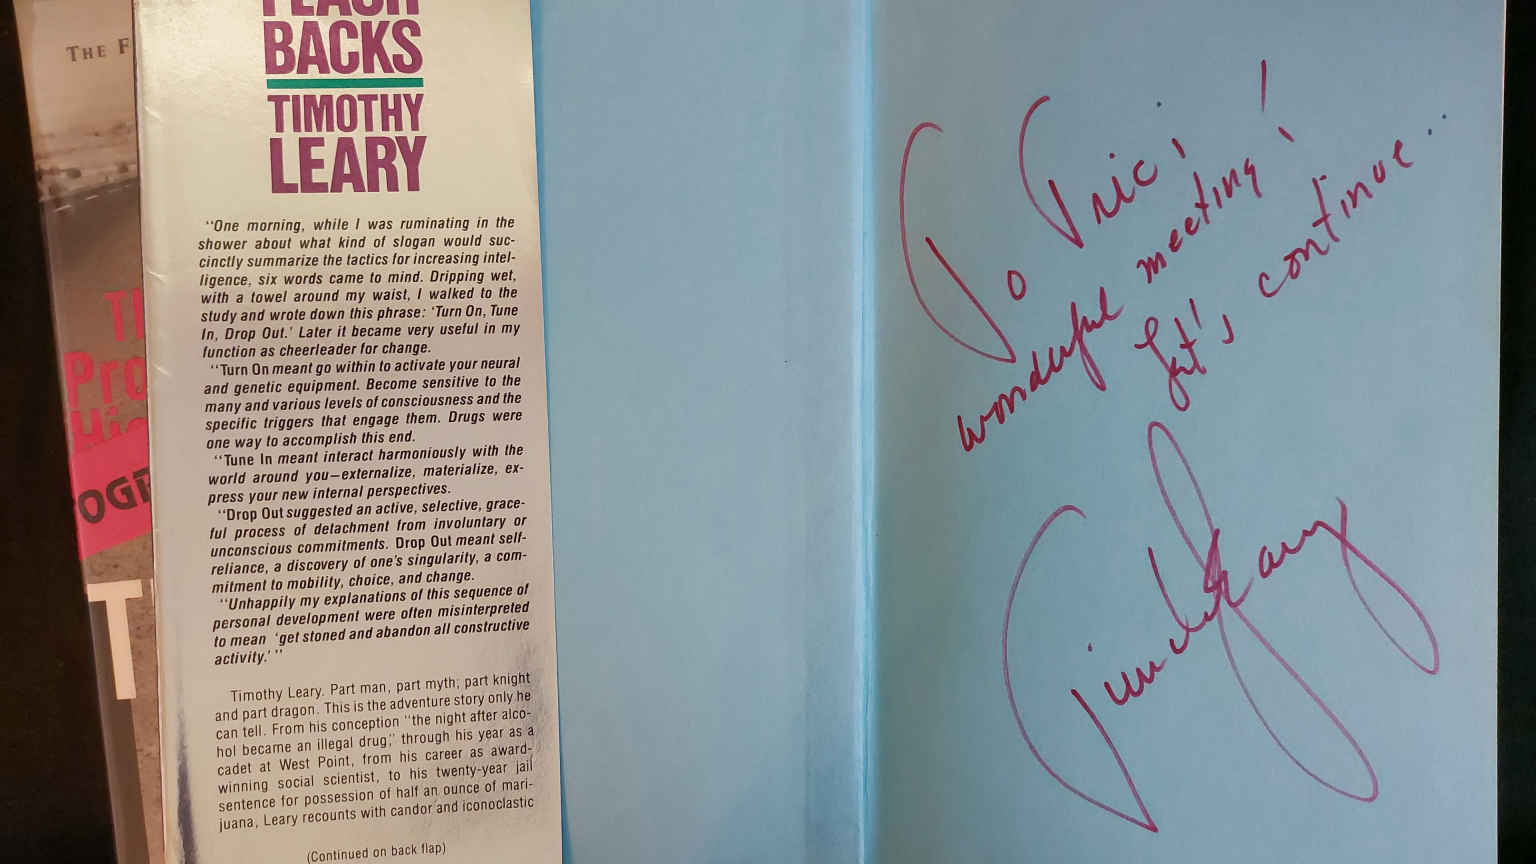 THE F
FLASH
BACKS
TIMOTHY
LEARY
"One morning, while I was ruminating in the
shower about what kind of slogan would suc-
cinctly summarize the tactics for increasing intel-
ligence, six words came to mind. Dripping wet,
with a towel around my waist, I walked to the
study and wrote down this phrase: 'Turn On, Tune
In, Drop Out.' Later it became very useful in my
function as cheerleader for change.
"Turn On meant go within to activate your neural
and genetic equipment. Become sensitive to the
many and various levels of consciousness and the
specific triggers that engage them. Drugs were
one way to accomplish this end.
"Tune In meant interact harmoniously with the
world around you—externalize, materialize, ex-
press your new internal perspectives.
"Drop Out suggested an active, selective, grace-
ful process of detachment from involuntary or
unconscious commitments. Drop Out meant self-
reliance, a discovery of one's singularity, a com-
mitment to mobility, choice, and change.
"Unhappily my explanations of this sequence of
personal development were often misinterpreted
to mean 'get stoned and abandon all constructive
activity.'"
Timothy Leary. Part man, part myth; part knight
and part dragon. This is the adventure story only he
can tell. From his conception "the night after alco-
hol became an illegal drug," through his year as a
cadet at West Point, from his career as award-
winning social scientist, to his twenty-year jail
sentence for possession of half an ounce of mari-
juana, Leary recounts with candor and iconoclastic
(Continued on back flap)
Pro
OGR
T
To Tric!
wonderful meeting!
Let's continue...
Timothy Leary